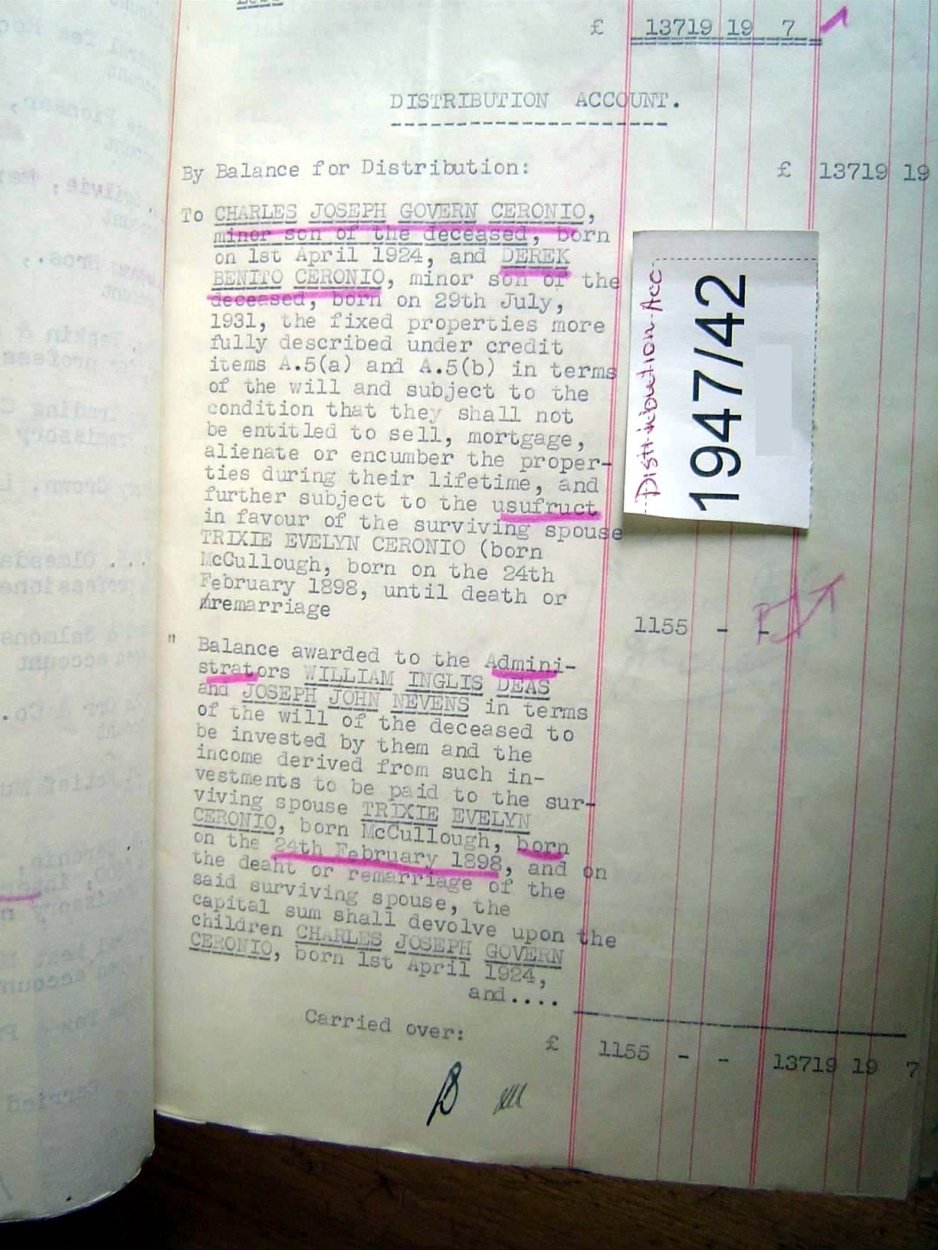 £ 13719 19 7
DISTRIBUTION ACCOUNT.
By Balance for Distribution: £ 13719 19
To CHARLES JOSEPH GOVERN CERONIO,
minor son of the deceased, born
on 1st April 1924, and DEREK
BENITO CERONIO, minor son of the
deceased, born on 29th July,
1931, the fixed properties more
fully described under credit
items A.5(a) and A.5(b) in terms
of the will and subject to the
condition that they shall not
be entitled to sell, mortgage,
alienate or encumber the proper-
ties during their lifetime, and
further subject to the usufruct
in favour of the surviving spouse
TRIXIE EVELYN CERONIO (born
McCullough, born on the 24th
February 1898, until death or
remarriage 1155 - -
" Balance awarded to the Admini-
strators WILLIAM INGLIS DEAS
and JOSEPH JOHN NEVENS in terms
of the will of the deceased to
be invested by them and the
income derived from such in-
vestments to be paid to the sur-
viving spouse TRIXIE EVELYN
CERONIO, born McCullough, born
on the 24th February 1898, and on
the deaht or remarriage of the
said surviving spouse, the
capital sum shall devolve upon the
children CHARLES JOSEPH GOVERN
CERONIO, born 1st April 1924,
and....
Carried over: £ 1155 - - 13719 19 7
Distribution Acc
1947/42